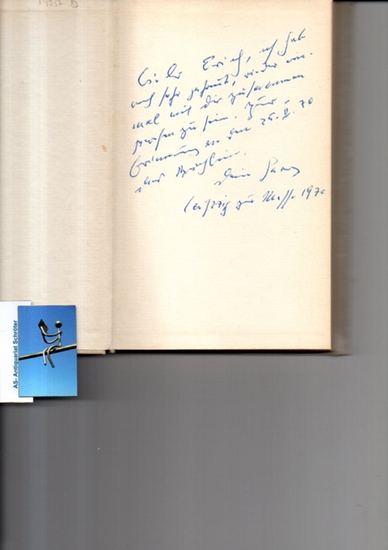 Lieber Erich, ich hab
mich sehr gefreut, wieder ein-
mal mit dir zusammen
gewesen zu sein. Zur
Erinnerung an den 26.2.70
Dein
Leipzig zur Messe 1970
AS-Antiquariat Schröter